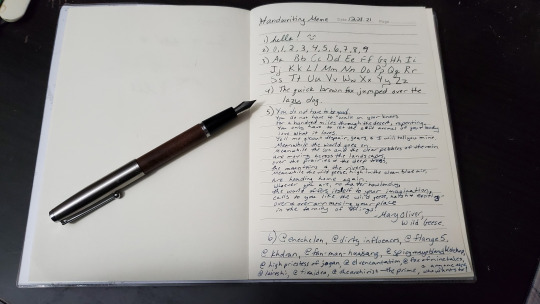 Handwriting Meme Date 12.21.21
1) hello! :)
2) 0, 1, 2, 3, 4, 5, 6, 7, 8, 9
3) Aa Bb Cc Dd Ee Ff Gg Hh Ii
Jj Kk Ll Mm Nn Oo Pp Qq Rr
Ss Tt Uu Vv Ww Xx Yy Zz
4) The quick brown fox jumped over the
lazy dog.
5) You do not have to be good.
You do not have to walk on your knees
for a hundred miles through the desert, repenting.
You only have to let the soft animal of your body
love what it loves.
Tell me about despair, yours, & I will tell you mine.
Meanwhile the world goes on.
Meanwhile the sun and the clear pebbles of the rain
are moving across the landscapes,
over the prairies & the deep trees,
the mountains & the rivers.
Meanwhile the wild geese, high in the clean blue air,
are heading home again.
Whoever you are, no matter how lonely,
the world offers itself to your imagination,
calls to you like the wild geese, harsh & exciting
over & over announcing your place
in the family of things.
- Mary Oliver,
Wild Geese
6) @enechelen, @dirty influences, @flange5,
@khdran, @fan-man-haobang, @spicymayoandketchup,
@highpriestess of jogan, @elvencantation, @foxofninetales,
@tirairgid, @theoarchivist-the-prime,